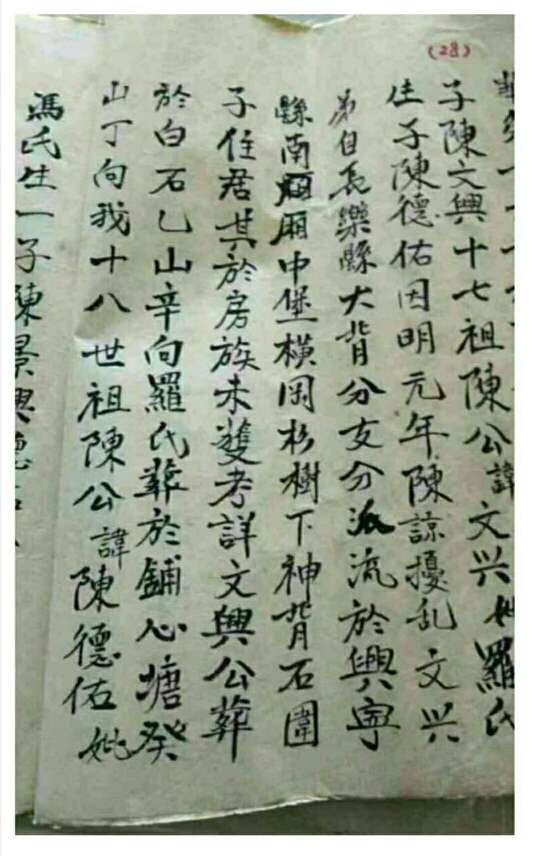 (28)
子陳文興十七祖陳公諱文兴妣羅氏
生子陳德佑因明元年陳諒擾乱文兴
弟自長樂縣大背分支分派流於興寧
縣南廂中堡橫岡杉樹下神背石圍
子住居其於房族未獲考詳文興公葬
於白石乙山辛向羅氏葬於鋪心塘癸
山丁向我十八世祖陳公諱陳德佑妣
馮氏生一子陳景興德